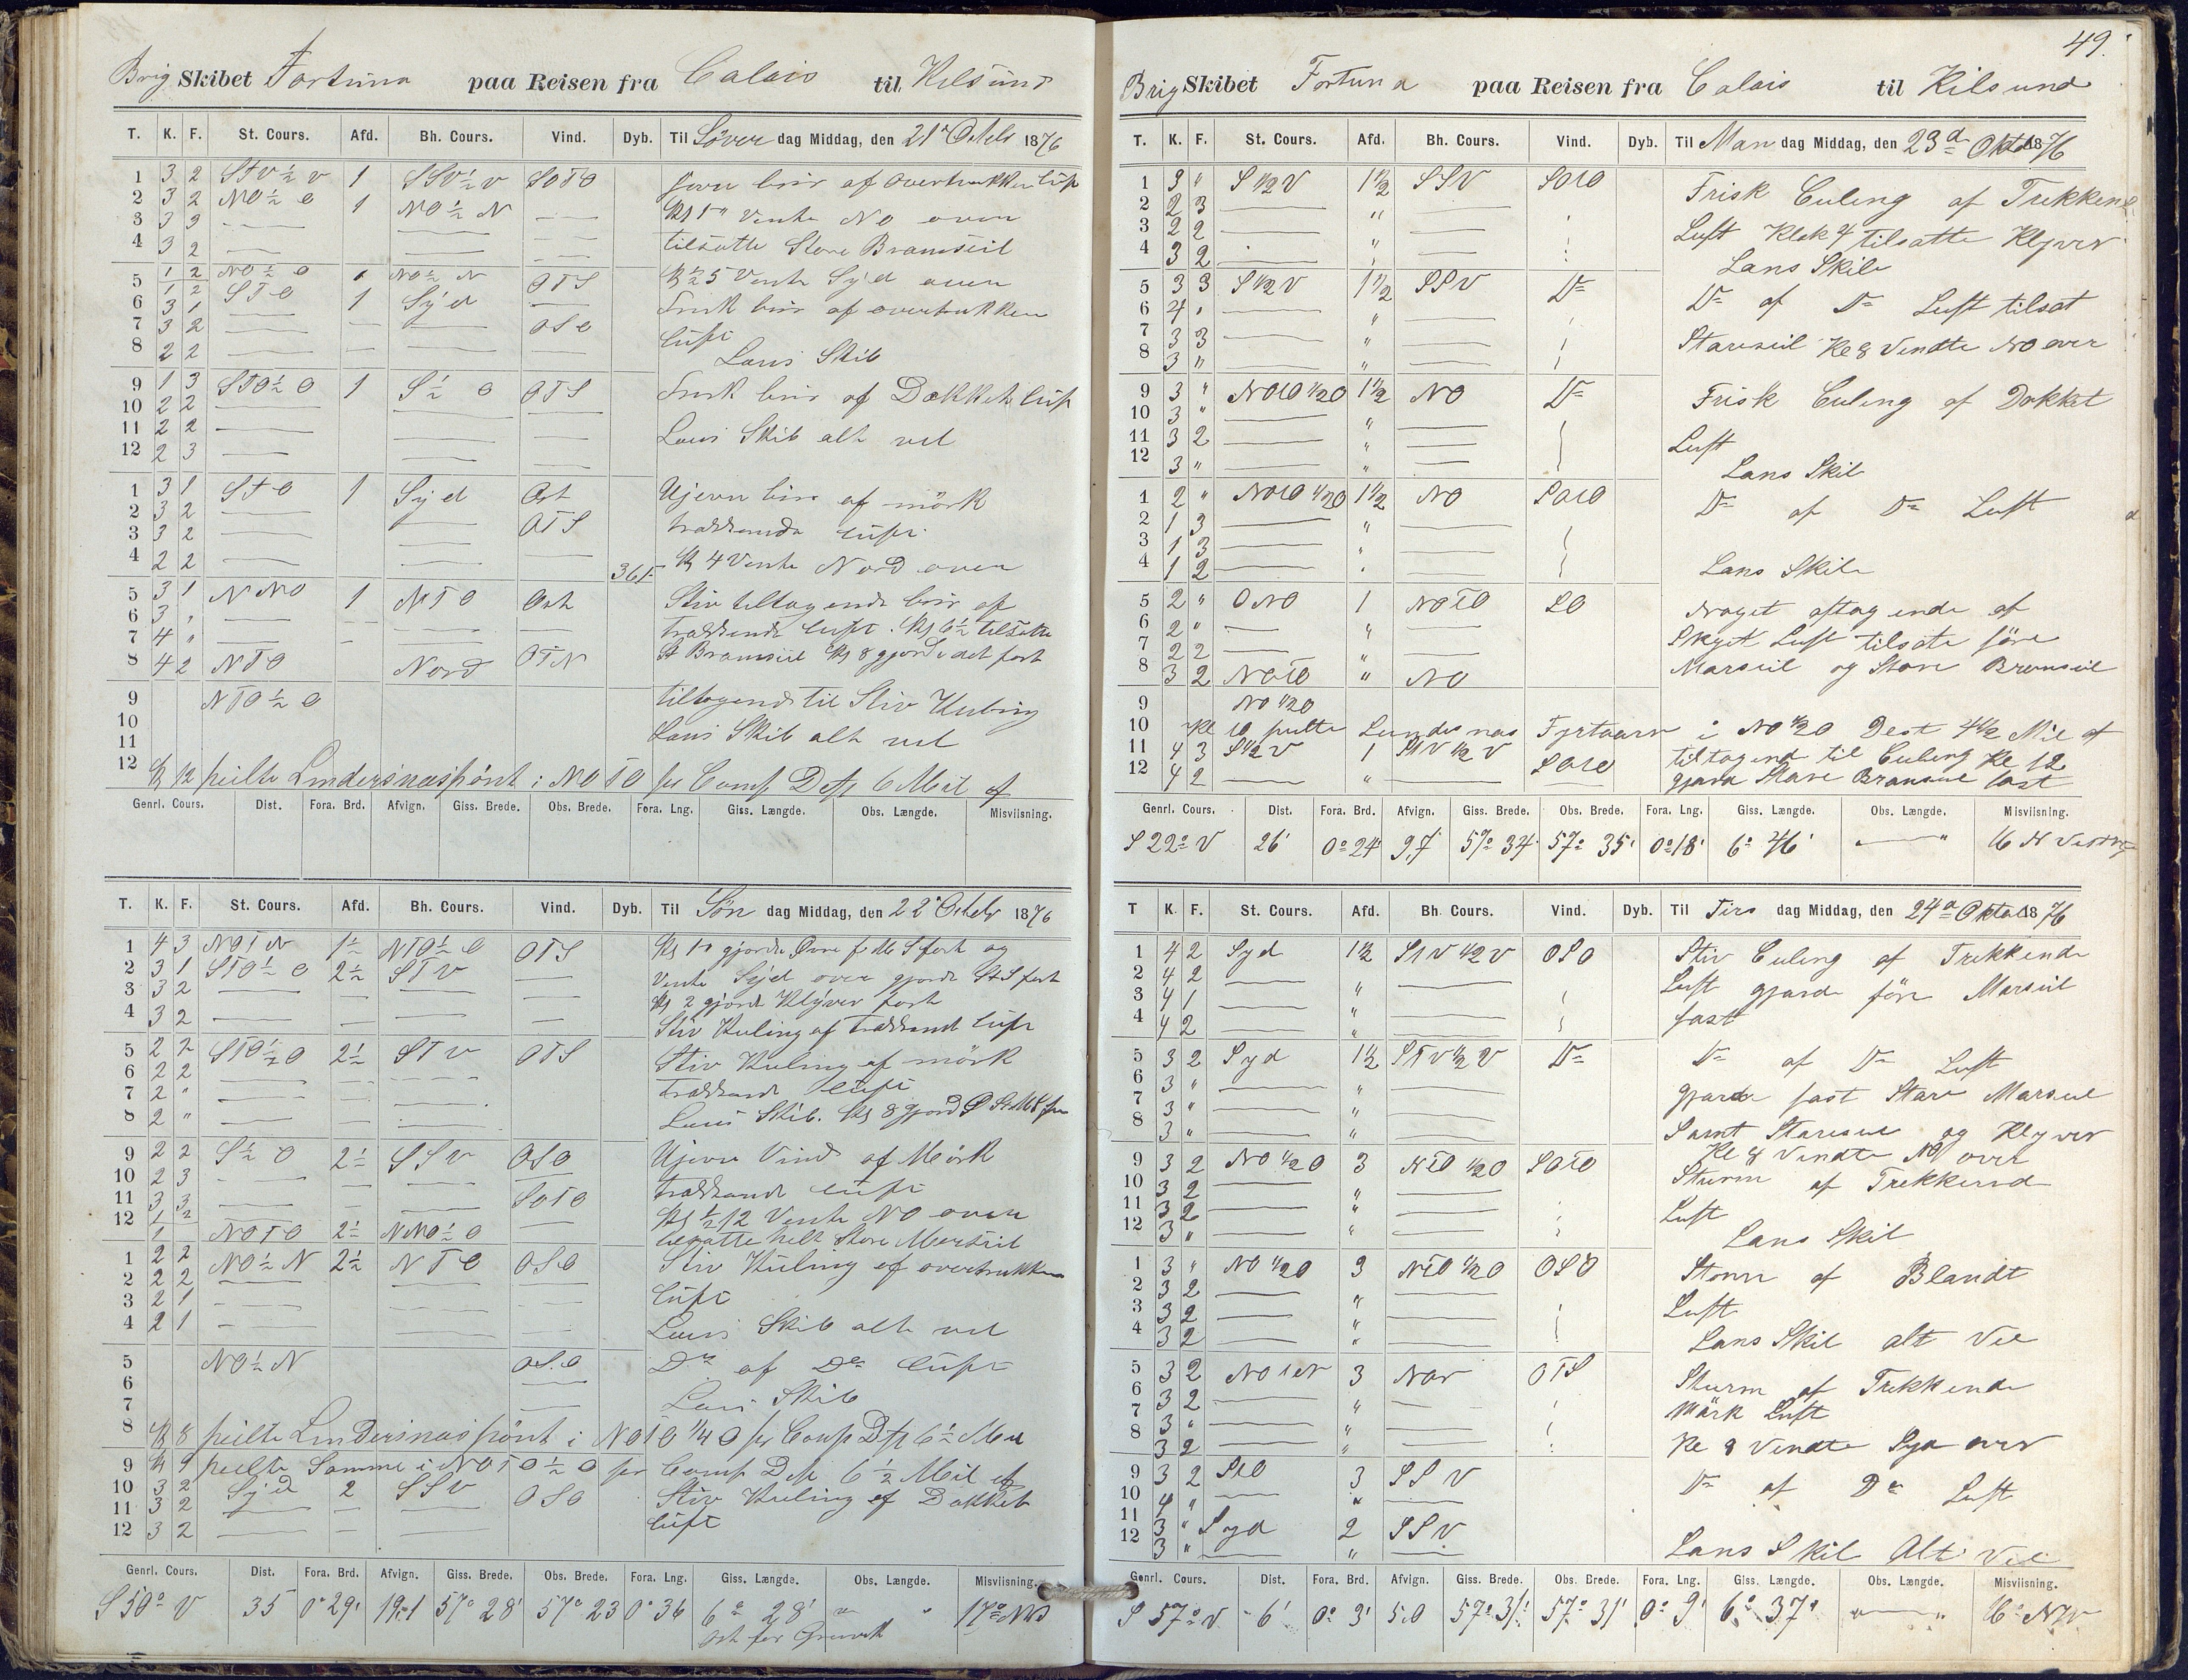 Brig Skibet Fortuna paa Reisen fra Calais til Kilsund
T. K. F. St. Cours. Afd. Bh. Cours. Vind. Dyb. Til Löver dag Middag, den 21 1876
1 3 2 STV½V 1 SSV½V SOTO Jevn bris af overtrukken luft
2 3 2 NO½O 1 NO½N Vente NO over
3 3 3
4 3 2 tilsatte Store Bramseil
5 1 2 NO½O NO½N OTS Vente Syd over
1 2 STO 1 Syd
6 3 1 Frisk bris af overtrukken
7 3 2 OSO luft
8 2 2 Lens Skib
9 1 3 STO½O 1 S½O OTS Frisk bris af Dækket luft
10 2 2
11 2 2 Lens Skib alt vel
12 2 3
1 3 1 STO 1 Syd Ost Ujevn bris af mörk
2 3 2 OTS
3 3 2 trækkende luft
4 2 2 4 Vente Nord over
5 3 1 NNO 1 NTO Ost Stiv tiltagende bris af
6 3 " trækkende luft. Kl 6½ tilsatte
7 4 "
8 4 2 NTO Nord OTN St Bramseil Kl 8 gjorde det fast
9 NTO½O tiltagende til Stiv Kuling
10
11 Lens Skib alt vel
12 Kl 12 peilte Lindersnæspönt i NOTO pr Comp Dist 6 Mil af
Genrl. Cours. Dist. Fora. Brd. Afvign. Giss. Brede. Obs. Brede. Fora. Lng. Giss. Længde. Obs. Længde. Misviisning.
T. K. F. St. Cours. Afd. Bh. Cours. Vind. Dyb. Til Sön dag Middag, den 22 1876
1 4 3 NOTN 1½ NTO½O OTS gjorde fast og
2 3 1 STO½O 2½ STV Vente Syd over gjorde St S fast
3 3 2 Kl 2 gjorde Klyver fast
4 3 2 Stiv Kuling af trækkende luft
5 2 2 STO½O 2½ STV OTS Stiv Kuling af mörk
6 2 2
7 2 " trækkende luft
8 2 " Lens Skib. Kl 8 gjord
9 2 2 S½O 2½ SSV OSO Ujevn Vind af Mörk
10 2 3 trækkende luft
11 3 3 SOTO
12 1 2 Kl ½12 Vente NO over
1 NOTO 2½ NNO½O helt Store Mersseil
1 2 2 NO½N 2½ NTO OSO Stiv Kuling af overtrukken
2 2 2 luft
3 2 1
4 2 1 Lens Skib alt vel
5 NO½N OSO Do af Do luft
6
7 Lens Skib
8 Kl 8 peilte Lindersnæspönt i NOTO¼O pr Comp Dist 6½ Mil
9 Kl 9 peilte Samme i NOTO½O pr Comp Dist 6½ Mil af
10 3 2 Syd 2 SSV OSO Stiv Kuling af Dækket
11 3 2 luft
12 3 2
Genrl. Cours. Dist. Fora. Brd. Afvign. Giss. Brede. Obs. Brede. Fora. Lng. Giss. Længde. Obs. Længde. Misviisning.
S 50° V 35 0° 29' 19.1 57° 28' 57° 23 0° 36 6° 28' " 17°
Ost for
49.
Brig Skibet Fortuna paa Reisen fra Calais til Kilsund
T. K. F. St. Cours. Afd. Bh. Cours. Vind. Dyb. Til Man dag Middag, den 23d Oktob 1876
1 3 " S½V 1½ SSV SOtO Frisk Culing af Trekkende
2 2 3 "
3 2 2 Luft Klok 4 tilsatte Klyver
4 3 2 " Lans Skib
5 3 3 S½V 1½ SSV Do Do af Do Luft tilsat
6 4 " "
7 3 3 " Stareseil Kl 8 Vendte NO over
8 3 " "
9 3 " NOtO½O 1½ NO Do Frisk Culing af Dækket
10 3 " "
11 3 2 " Luft
12 3 " " Lans Skib
1 2 " NOtO½O 1½ NO SOtO Do af Do Luft
2 1 3 "
3 1 3 "
4 1 2 " Lans Skib
5 2 " ONO 1 NOtO SO Noget aftagende af
6 2 " " Skyet Luft tilsate före
7 2 2 " Marseil og Store Bramseil
8 3 2 NOtO " NO
9 NO½O
10 Kl 10 peilte Lindesnæs Fyrtaarn i NO½O Dest 4½ Mil af
11 4 3 S½V 1 StV½V SOtO tiltagend til Culing Kl 12
12 4 2 " gjorde Store Bramseil fast
Genrl. Cours. Dist. Fora. Brd. Afvign. Giss. Brede. Obs. Brede. Fora. Lng. Giss. Længde. Obs. Længde. Misviisning.
S 22° V 26' 0° 24' 9,7 57° 34' 57° 35' 0° 18' 6° 46' " 16
T K. F. St. Cours. Afd. Bh. Cours. Vind. Dyb. Til Tirs dag Middag, den 24de Oktob 1876
1 4 2 Syd 1½ StV½V OSO Stiv Culing af Trekkende
2 4 2
3 4 1 " Luft gjorde före Marseil
4 4 2 " fast
5 3 2 Syd 1½ StV½V Do Do af Do Luft
6 3 " "
7 3 " " gjorde fast Store Marseil
8 3 " " Samt Stareseil og Klyver
Kl 8 Vendte NO over
9 3 2 NO½O 3 NtO½O SOtO Sturm af Trekkend
10 3 2 "
11 3 2 " Luft
12 3 " " Lans Skib
1 3 " NO½O 3 NtO½O OSO Storm af Blandt
2 3 2 " Luft
3 3 2 "
4 3 2 " Lans Skib alt Vel
5 3 2 NOtN 3 OtS Sturm af Trekkende
6 3 2 " Mörk Luft
7 3 " "
8 3 2 " Kl 8 Vendte Syd over
9 3 2 StO 3 SSV Do af Do Luft
10 4 " "
11 3 " Syd 2 SSV
12 3 " " Lans Skib Alt Vel
Genrl. Cours. Dist. Fora. Brd. Afvign. Giss. Brede. Obs. Brede. Fora. Lng. Giss. Længde. Obs. Længde. Misviisning.
S 57° V 6' 0° 3' 5.0 57° 31' 57° 31' 0° 9' 6° 37' " 16°